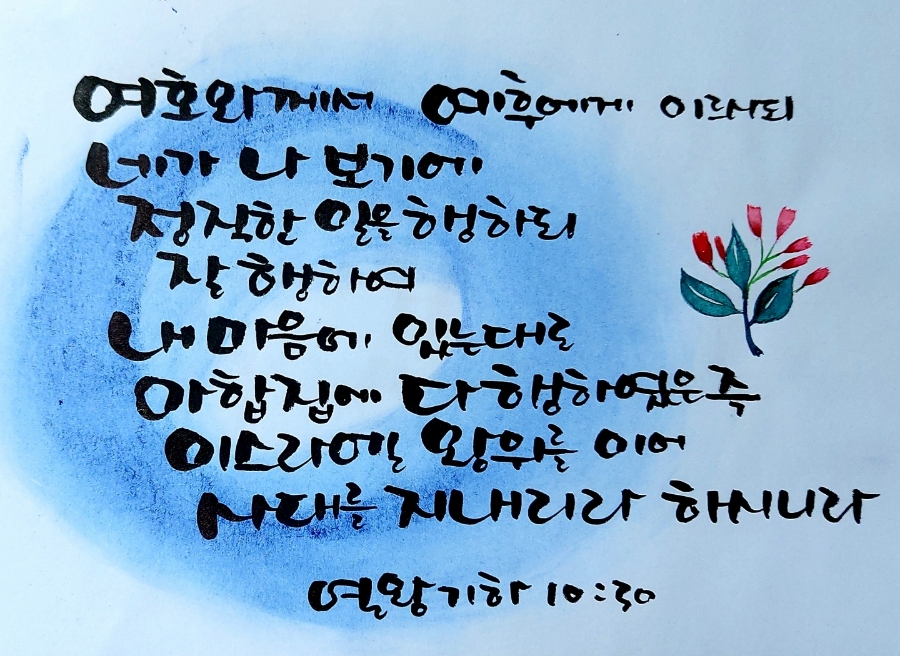 여호와께서 예후에게 이르시되
네가 나 보기에
정직한 일을 행하되
잘 행하여
내 마음에 있는대로
아합집에 다 행하였은즉
이스라엘 왕위를 이어
사대를 지내리라 하시니라
열왕기하 10:30